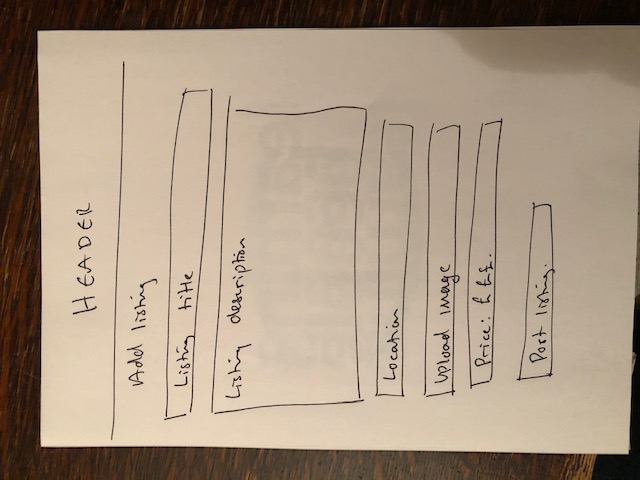 HEADER
Add listing
Listing title
Listing description
Location
Upload image
Price: £££.
Post listing.